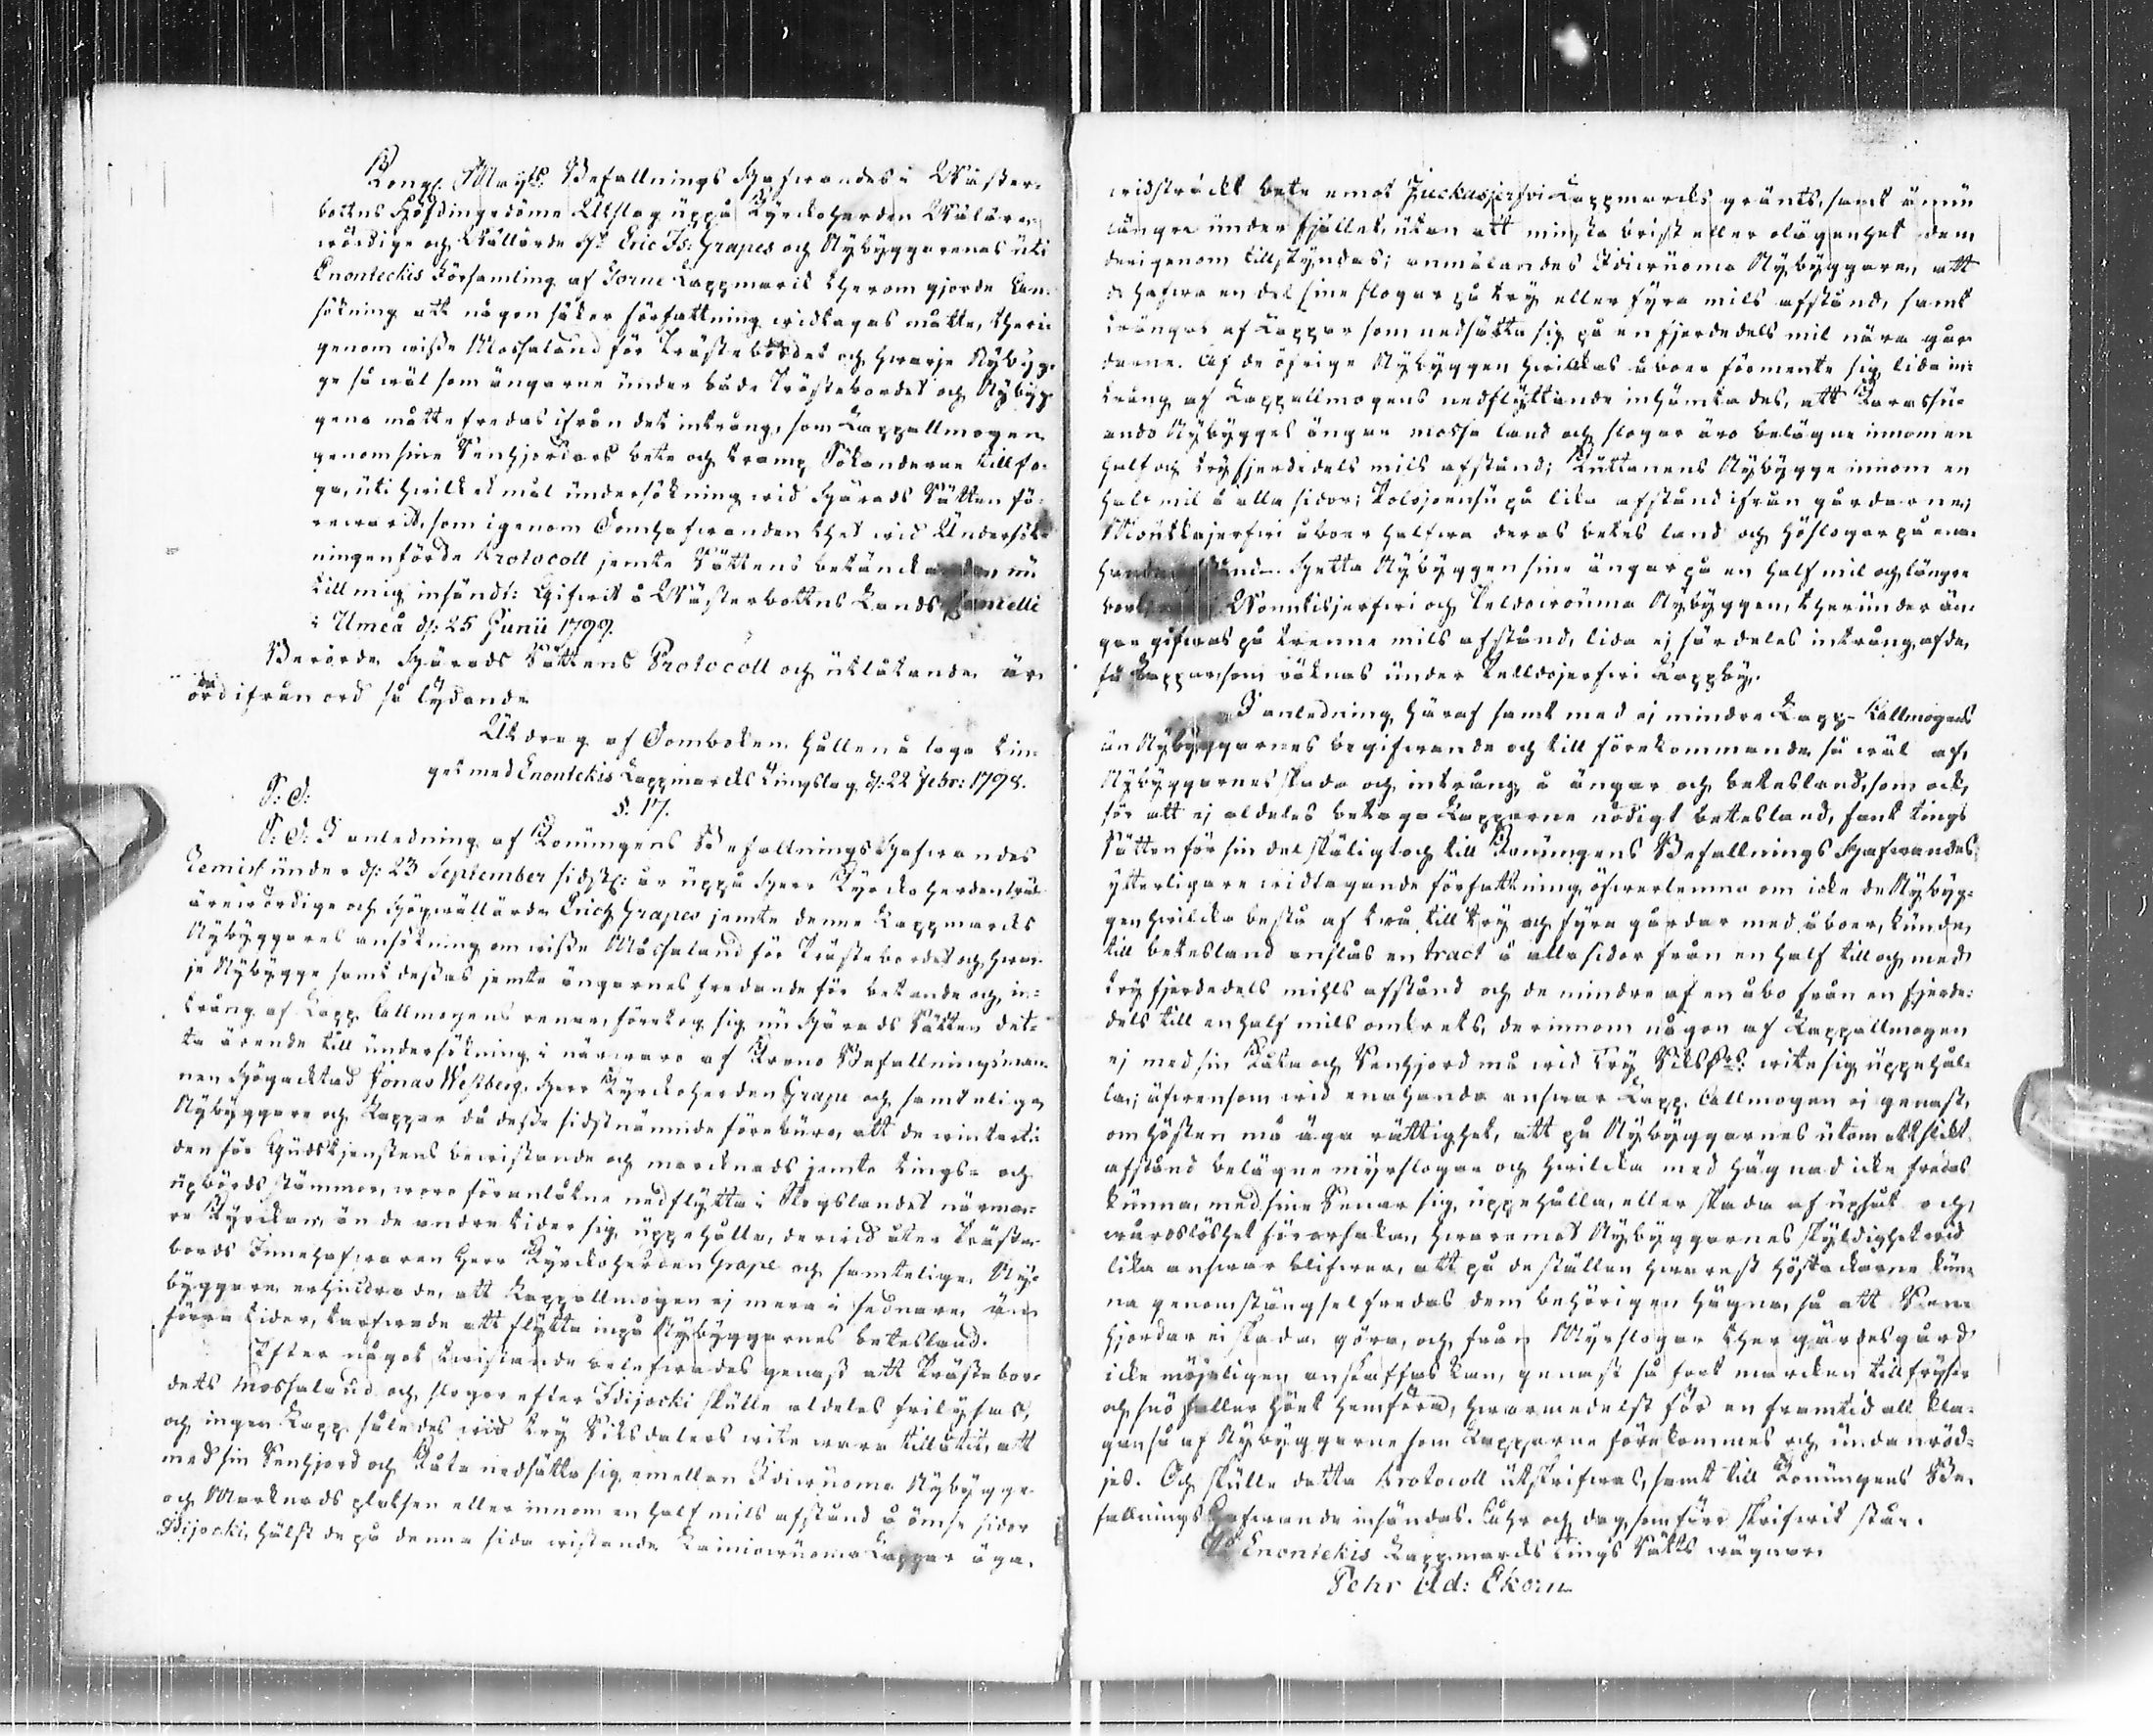 Kongl. Maj:ts Befallnings Hafwandes i Wäster-
bottns Höfdingedöme Utslag uppå Kyrckoherden Wäläre-
wördige och Wällärde Hr Eric Is: Grapes och Nybyggarenas uti
Enonteckis Församling af Torne Lappmarck therom gjorde An-
sökning att någon säker författning widtagas måtte, theri-
genom wisse Mossaland för Prästebordet och hwarje Nybyg-
ge så wäl som ängarne under både Prästebordet och Nybyg-
gena måtte fredas ifrån det intrång, som Lappallmogen
genom sine Renhjordars bete och tramp Sökanderne tillfo-
ga, uti hwilket mål undersökning wid Härads Rätten fö-
rewarit, som igenom Domhafwanden thet wid Undersök-
ningen förde Protocoll jemte Rättens betänckanden nu
till mig insändt: Gifwit å Wästerbottns Lands Cancelli
i Umeå d: 25 Junii 1799.
Berörde Härads Rättens Protocoll och utlåtande är
ord ifrån ord så lydande
Utdrag af Domboken, hållen å laga tin-
get med Enontekis Lappmarcks Tingslag d: 22 Febr: 1798.
S: D:
§. 17.
S: D: I anledning af Konungens Befallnings Hafwandes
Remiss under d: 23 September sidstl: år uppå Herr Kyrckoherden wäl-
ärewördige och Högwällärde Erich Grapes jemte denne Lappmarcks
Nybyggares ansökning om wisse Måssaland för Prästebordet och hwar-
je Nybygge samt dessas jemte ängarnes fredande för betande och in-
trång af Lapp Allmogens renar, företog sig nu Härads Rätten det-
ta ärende till undersökning i närwaro af Krono Befallningsman-
nen Högacktad Jonas Westberg, Herr Kyrckoherden Grape och samtelige
Nybyggare och Lappar då desse sidstnämnde föreburo, att de winterti-
den för Gudstjenstens bewistande och marcknads jemte tings- och
upbörds stämmor, woro föranlåtne nedflytta i Skogslandet närma-
re Kyrckan, än de andre tider sig uppehålla, derwid åter Präste-
bords Innehafwaren Herr Kyrckoherden Grape och samtelige Ny-
byggare erhindrade, att Lappallmogen ej mera i sednare än
förra tider, tarfwade att flytta inpå Nybyggarnes betesland.
Efter något twistande belefwades genast att Prästebor-
dets Mossaland och slogor efter Idijocki skulle aldeles frilysas,
och ingen Lapp således wid try Riksdalers wite wara tillåtit, att
med sin Renhjord och Kåta nedsätta sig emellan Idiwuoma Nybygge
och Marknads platsen eller innom en half mils afstånd å ömse sidor
Idijocki, hälst de på denna sida wistande Lainiowuoma Lappar äga
widsträckt bete emot Juckasjerfwi Lappmarcks gränts, samt ännu
längre under fjället, utan att minsta brist eller olägenhet dem
derigenom tillskyndas; anmälandes Idiwuoma Nybyggaren att
de hafwa en del sine slogar på try eller fyra mils afstånd, samt
trängas af Lappar som nedsätta sig på en fjerdedels mil nära går-
darne. Af de öfrige Nybyggen hwilkas åboer förmente sig lida in-
trång af Lappallmogens nedflyttande inhämtades, att Karessu-
ando Nybygges ängar mossa land och slogar äro belägne innom en
half och try fjerdedels mils afstånd; Kuttanens Nybygge innom en
half mil å alla sidor; Palojoensu på lika afstånd ifrån gårdarne;
Muotkajerfwi åboer hafwa deras betes land och höslogar på ena-
handa afstånd. Hetta Nybyggen sine ängar på en half mil och längre
bort Wuontisjerfwi och Peldowuoma Nybyggen, therunder än-
gar gifwas på trenne mils afstånd, lida ej särdeles intrång af de
få Lappar som räknas under Pelldojerfwi Lappby.
I anledning häraf samt med ej mindre Lapp-Allmogens
än Nybyggarnes begifwande och till förekommande så wäl af
Nybyggarnes skada och intrång å ängar och betesland, som ock,
för att ej aldeles betaga Lapparne nödigt betesland, fant tings
Rätten för sin del skäligt och till Konungens Befallnings Hafwandes
ytterligare widtagande författning öfwerlemna om icke de Nybyg-
gen hwilcka bestå af twå till try och fyra gårdar med åboer, kunde,
till betesland anslås en tract å alla sidor från en half till och med
try fjerdedels mihls afstånd och de mindre af en åbo från en fjerde-
dels till en half mils omkrets, derinnom någon af Lappallmogen
ej med sin Kåta och Renhjord må wid Try Riksd:rs wite sig uppehål-
la; äfwensom wid enahanda answar Lapp Allmogen ej genast,
om hösten må äga rättighet, att på Nybyggarnes utom ett slikt
afstånd belägne myrslogar och hwilcka med hägnad icke fredas
kunna, med sine Renar sig uppehålla, eller skada af upsåt och
wårdslöshet förorsaka, hwaremot Nybyggarnes skyldighet wid
lika answar blifwer, att på de ställen hwarest höstackarne kun-
na genom stängsel fredas dem behörigen hägna, så att Ren
hjordar ei skada göra, och från Myrslogar ther gärdesgård
icke möjeligen anskaffas kan, genast så fort marcken tillfryser
och snö faller höet hemföra, hwarmedelst för en framtid all kla-
gan så af Nybyggarne som Lapparne förekommes och undanröd-
jes. Och skulle detta Protocoll utskrifwas, samt till Konungens Be-
fallnings Hafwande insändas. Åhr och dag, som förr skrifwit står.
På Enontekis Lappmarcks tings Rätts wägnar.
Pehr Ad: Ekorn